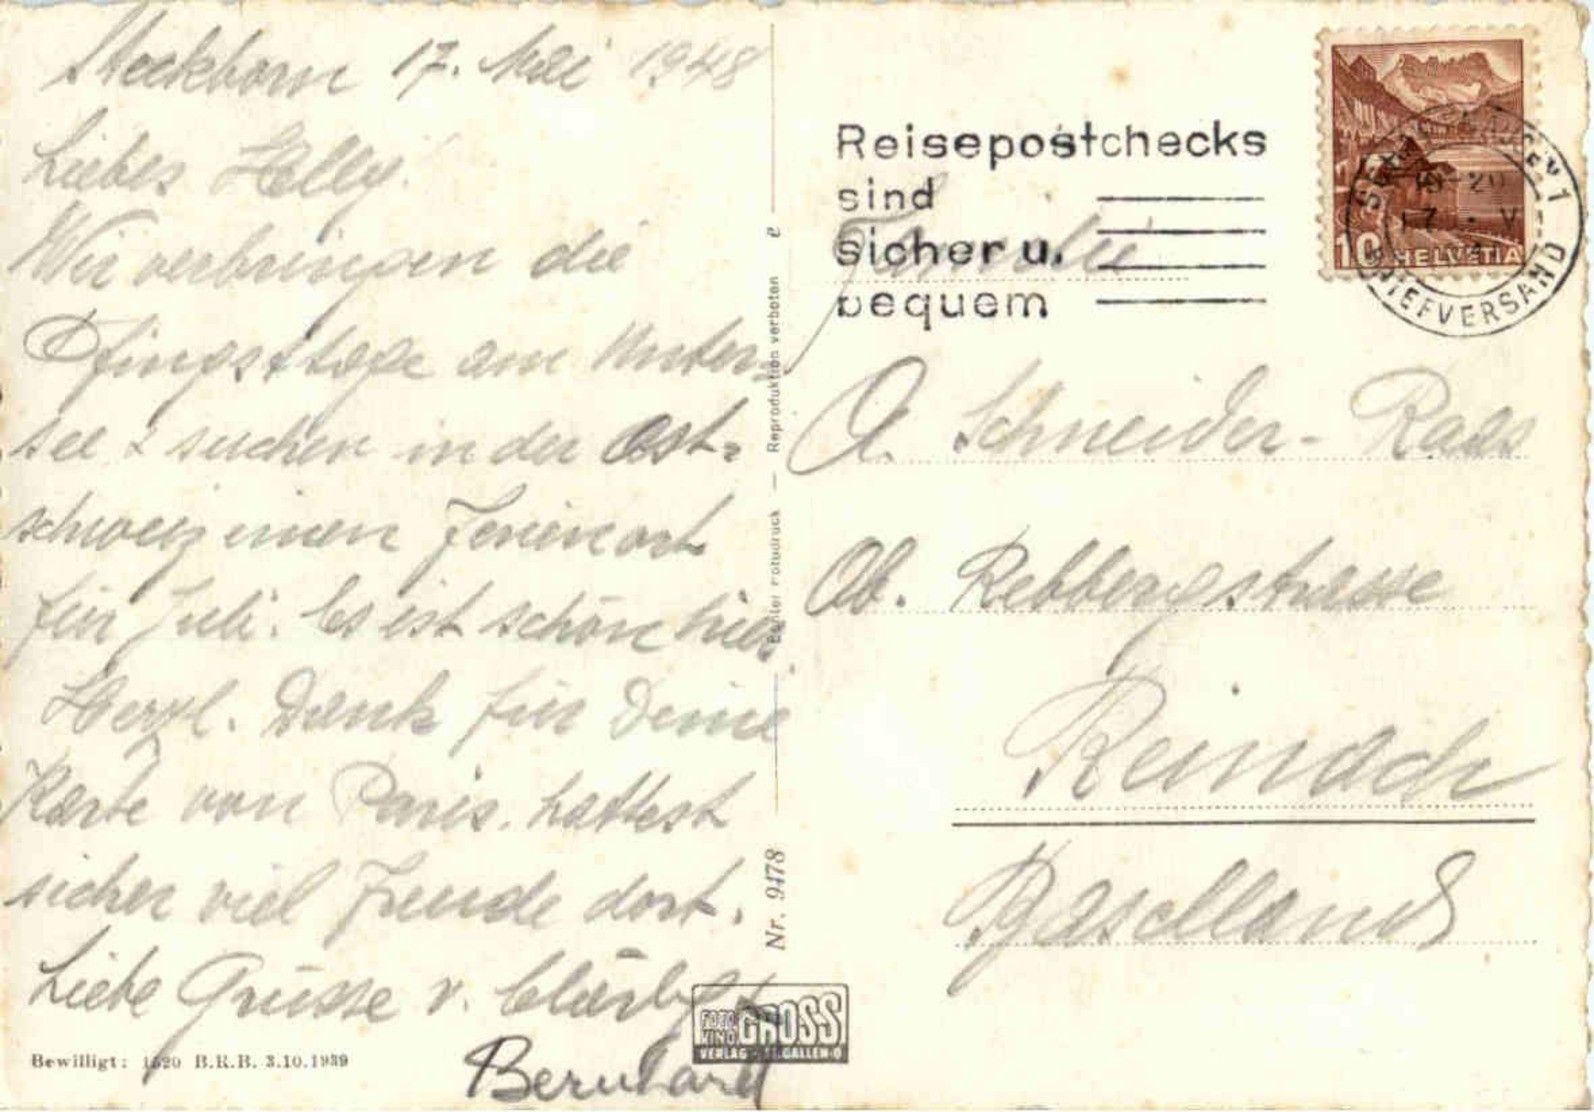 Steckborn 17. Mai 1948
Liebes Helly.
Wir verbringen die
Pfingsttage am Unter-
see & suchen in der Ost-
schweiz einen Ferienort
für Juli. Es ist schön hier.
Herzl. Dank für Deine
Karte von Paris. hattest
sicher viel Freude dort.
Liebe Grüsse v. Clärly &
Bernhard
Bewilligt: 1520 B.R.B. 3.10.1939
Echter Fotodruck — Reproduktion verboten
Nr. 9478
FOTO KINO GROSS
VERLAG ST.GALLEN-O
Reisepostchecks
sind
sicher u.
bequem
BRIEFVERSAND
10 HELVETIA
Familie
A. Schneider-Raas
Ob. Rebbergstrasse
Reinach
Baselland